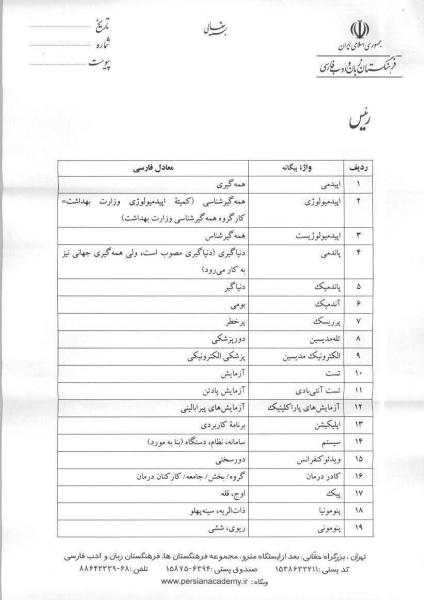 بسمه تعالی
جمهوری اسلامی ایران
فرهنگستان زبان و ادب فارسی
تاریخ
شماره
پیوست
رئیس
ردیف واژهٔ بیگانه معادل فارسی
۱ اپیدمی همه‌گیری
۲ اپیدمیولوژی همه‌گیرشناسی (کمیتهٔ اپیدمیولوژی وزارت بهداشت=
کارگروه همه‌گیرشناسی وزارت بهداشت)
۳ اپیدمیولوژیست همه‌گیرشناس
۴ پاندمی دنیاگیری (دنیاگیری مصوب است، ولی همه‌گیری جهانی نیز
به کار می‌رود)
۵ پاندمیک دنیاگیر
۶ آندمیک بومی
۷ پرریسک پرخطر
۸ تله‌مدیسین دورپزشکی
۹ الکترونیک مدیسین پزشکی الکترونیکی
۱۰ تست آزمایش
۱۱ تست آنتی‌بادی آزمایش پادتن
۱۲ آزمایش‌های پاراکلینیک آزمایش‌های پیرابالینی
۱۳ اپلیکیشن برنامهٔ کاربردی
۱۴ سیستم سامانه، نظام، دستگاه (بنا به مورد)
۱۵ ویدئوکنفرانس دورسخنی
۱۶ کادر درمان گروه/ بخش/ جامعه/ کارکنان درمان
۱۷ پیک اوج، قله
۱۸ پنومونیا ذات‌الریه، سینه‌پهلو
۱۹ پنومونی ریوی، ششی
تهران، بزرگراه حقانی، بعد از ایستگاه مترو، مجموعه فرهنگستان ها، فرهنگستان زبان و ادب فارسی
کد پستی: ۱۵۳۸۶۳۳۲۱۱ صندوق پستی: ۶۳۹۴-۱۵۸۷۵ تلفن: ۶۸-۸۸۶۴۲۳۳۹
وبگاه: www.persianacademy.ir